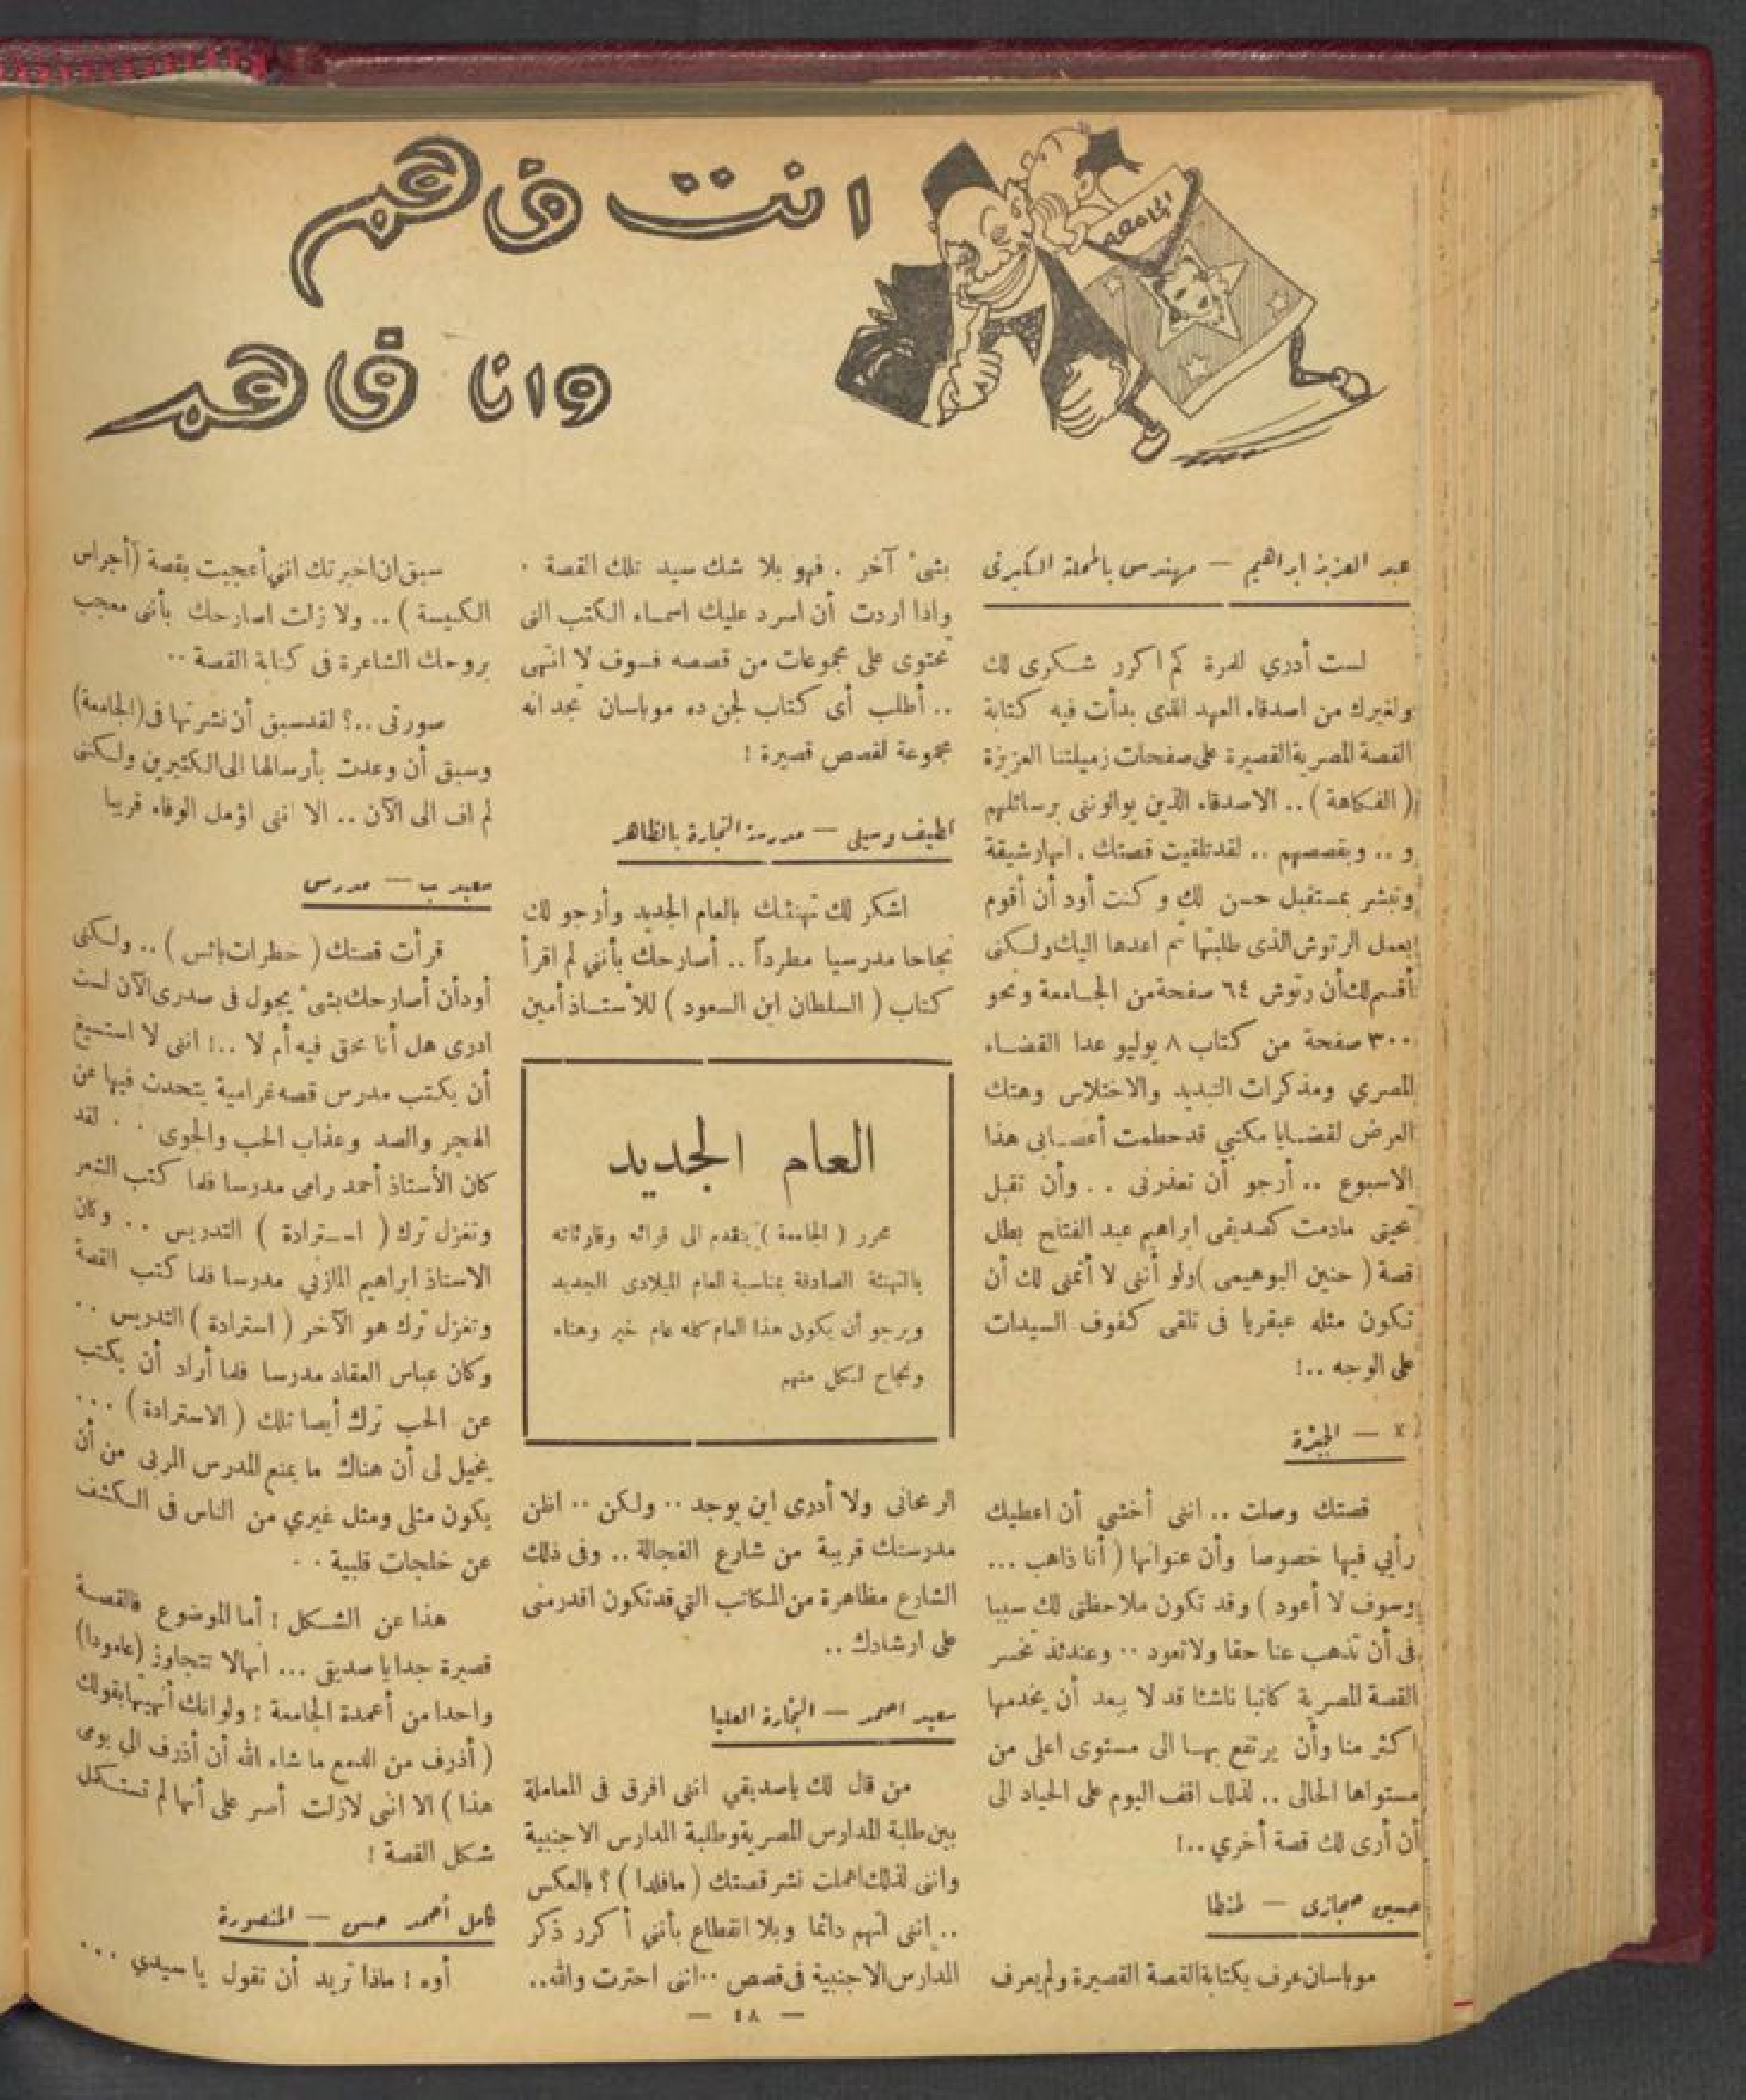 انت فاهم
وانا فاهم
الجامعة
عبد العزيز ابراهيم — مهندس بالمحلة الكبرى
لست أدري للمرة كم اكرر شكرى لك
ولغيرك من اصدقاء العهد الذى بدأت فيه كتابة
القصة المصرية القصيرة على صفحات زميلتنا العزيزة
( الفكاهة ) .. الاصدقاء الذين يوالوننى برسائلهم
و .. وبقصصهم .. لقد تلقيت قصتك . انها رشيقة
وتبشر بمستقبل حسن لك وكنت أود أن أقوم
بعمل الرتوش الذى طلبتها ثم اعدها اليك ولكنى
أقسم لك أن رتوش ٦٤ صفحة من الجامعة ونحو
٣٠٠ صفحة من كتاب ٨ يوليو عدا القضاء
المصري ومذكرات التبديد والاختلاس وهتك
العرض لقضايا مكتبي قد حطمت أعصابى هذا
الاسبوع .. أرجو أن تعذرنى .. وأن تقبل
محبتى مادمت كصديقى ابراهيم عبد الفتاح بطل
قصة ( حنين البوهيمى ) ولو أننى لا أتمنى لك أن
تكون مثله عبقريا فى تلقى كفوف السيدات
على الوجه ..!
— الجيزة
قصتك وصلت .. اننى أخشى أن اعطيك
رأيي فيها خصوصا وأن عنوانها ( أنا ذاهب ...
وسوف لا أعود ) وقد تكون ملاحظتى لك سببا
فى أن تذهب عنا حقا ولا تعود .. وعندئذ تخسر
القصة المصرية كاتبا ناشئا قد لا يبعد أن يخدمها
اكثر منا وأن يرتفع بها الى مستوى اعلى من
مستواها الحالى .. لذلك اقف اليوم على الحياد الى
أن أرى لك قصة أخري ..!
حسين حجازى — طنطا
موباسان عرف بكتابة القصة القصيرة ولم يعرف
بشىء آخر . فهو بلا شك سيد تلك القصة .
واذا اردت أن اسرد عليك اسماء الكتب التى
تحتوى على مجموعات من قصصه فسوف لا انتهى
.. أطلب أى كتاب لجى ده موباسان تجد انه
مجموعة لقصص قصيرة !
لطيف وسيلى — مدرسة التجارة بالظاهر
اشكر لك تهنئتك بالعام الجديد وأرجو لك
نجاحا مدرسيا مطرداً .. أصارحك بأننى لم اقرأ
كتاب ( السلطان ابن السعود ) للأستاذ أمين
العام الجديد
محرر ( الجامعة ) يتقدم الى قرائه وقارئاته
بالتهنئة الصادقة بمناسبة العام الميلادى الجديد
ويرجو أن يكون هذا العام كله عام خير وهناء
ونجاح لكل منهم
الريحانى ولا أدرى اين يوجد .. ولكن .. اظن
مدرستك قريبة من شارع الفجالة .. وفى ذلك
الشارع مظاهرة من المكاتب التي قد تكون اقدر منى
على ارشادك ..
سعيد احمد — التجارة العليا
من قال لك ياصديقي اننى افرق فى المعاملة
بين طلبة المدارس المصرية وطلبة المدارس الاجنبية
وانني لذلك اهملت نشر قصتك ( مافلدا ) ؟ بالعكس
.. اننى اتهم دائما وبلا انقطاع بأننى أكرر ذكر
المدارس الاجنبية فى قصصى .. اننى احترت والله..
سبق ان اخبرتك اننى أعجبت بقصة ( أجراس
الكنيسة ) .. ولا زلت اصارحك بأننى معجب
بروحك الشاعرة فى كتابة القصة ..
صورتى ..؟ لقد سبق أن نشرتها فى (الجامعة)
وسبق أن وعدت بأرسالها الى الكثيرين ولكننى
لم اف الى الآن .. الا اننى اؤمل الوفاء قريبا
سعيد ب — مدرس
قرأت قصتك ( خطرات بائس ) .. ولكنى
أود أن أصارحك بشىء يجول فى صدرى الآن لست
ادرى هل أنا محق فيه أم لا ..! اننى لا استسيغ
أن يكتب مدرس قصه غرامية يتحدث فيها عن
الهجر والصد وعذاب الحب والجوى .. لقد
كان الأستاذ أحمد رامى مدرسا فلما كتب الشعر
وتغزل ترك ( استرادة ) التدريس .. وكان
الاستاذ ابراهيم المازني مدرسا فلما كتب القصة
وتغزل ترك هو الآخر ( استرادة ) التدريس ..
وكان عباس العقاد مدرسا فلما أراد أن يكتب
عن الحب ترك أيضا تلك ( الاسترادة ) ...
يخيل لى أن هناك ما يمنع المدرس المربى من أن
يكون مثلى ومثل غيري من الناس فى الكشف
عن خلجات قلبية ..
هذا عن الشكل ! أما الموضوع فالقصة
قصيرة جدا يا صديقى ... انها لا تتجاوز (عامودا)
واحدا من أعمدة الجامعة ! ولو انك أنهيتها بقولك
( أذرف من الدمع ما شاء الله أن أذرف الي يومى
هذا ) الا اننى لازلت أصر على أنها لم تستكمل
شكل القصة !
كامل أحمد حسن — المنصورة
أوه ! ماذا تريد أن تقول يا سيدي ...
— ٤٨ —